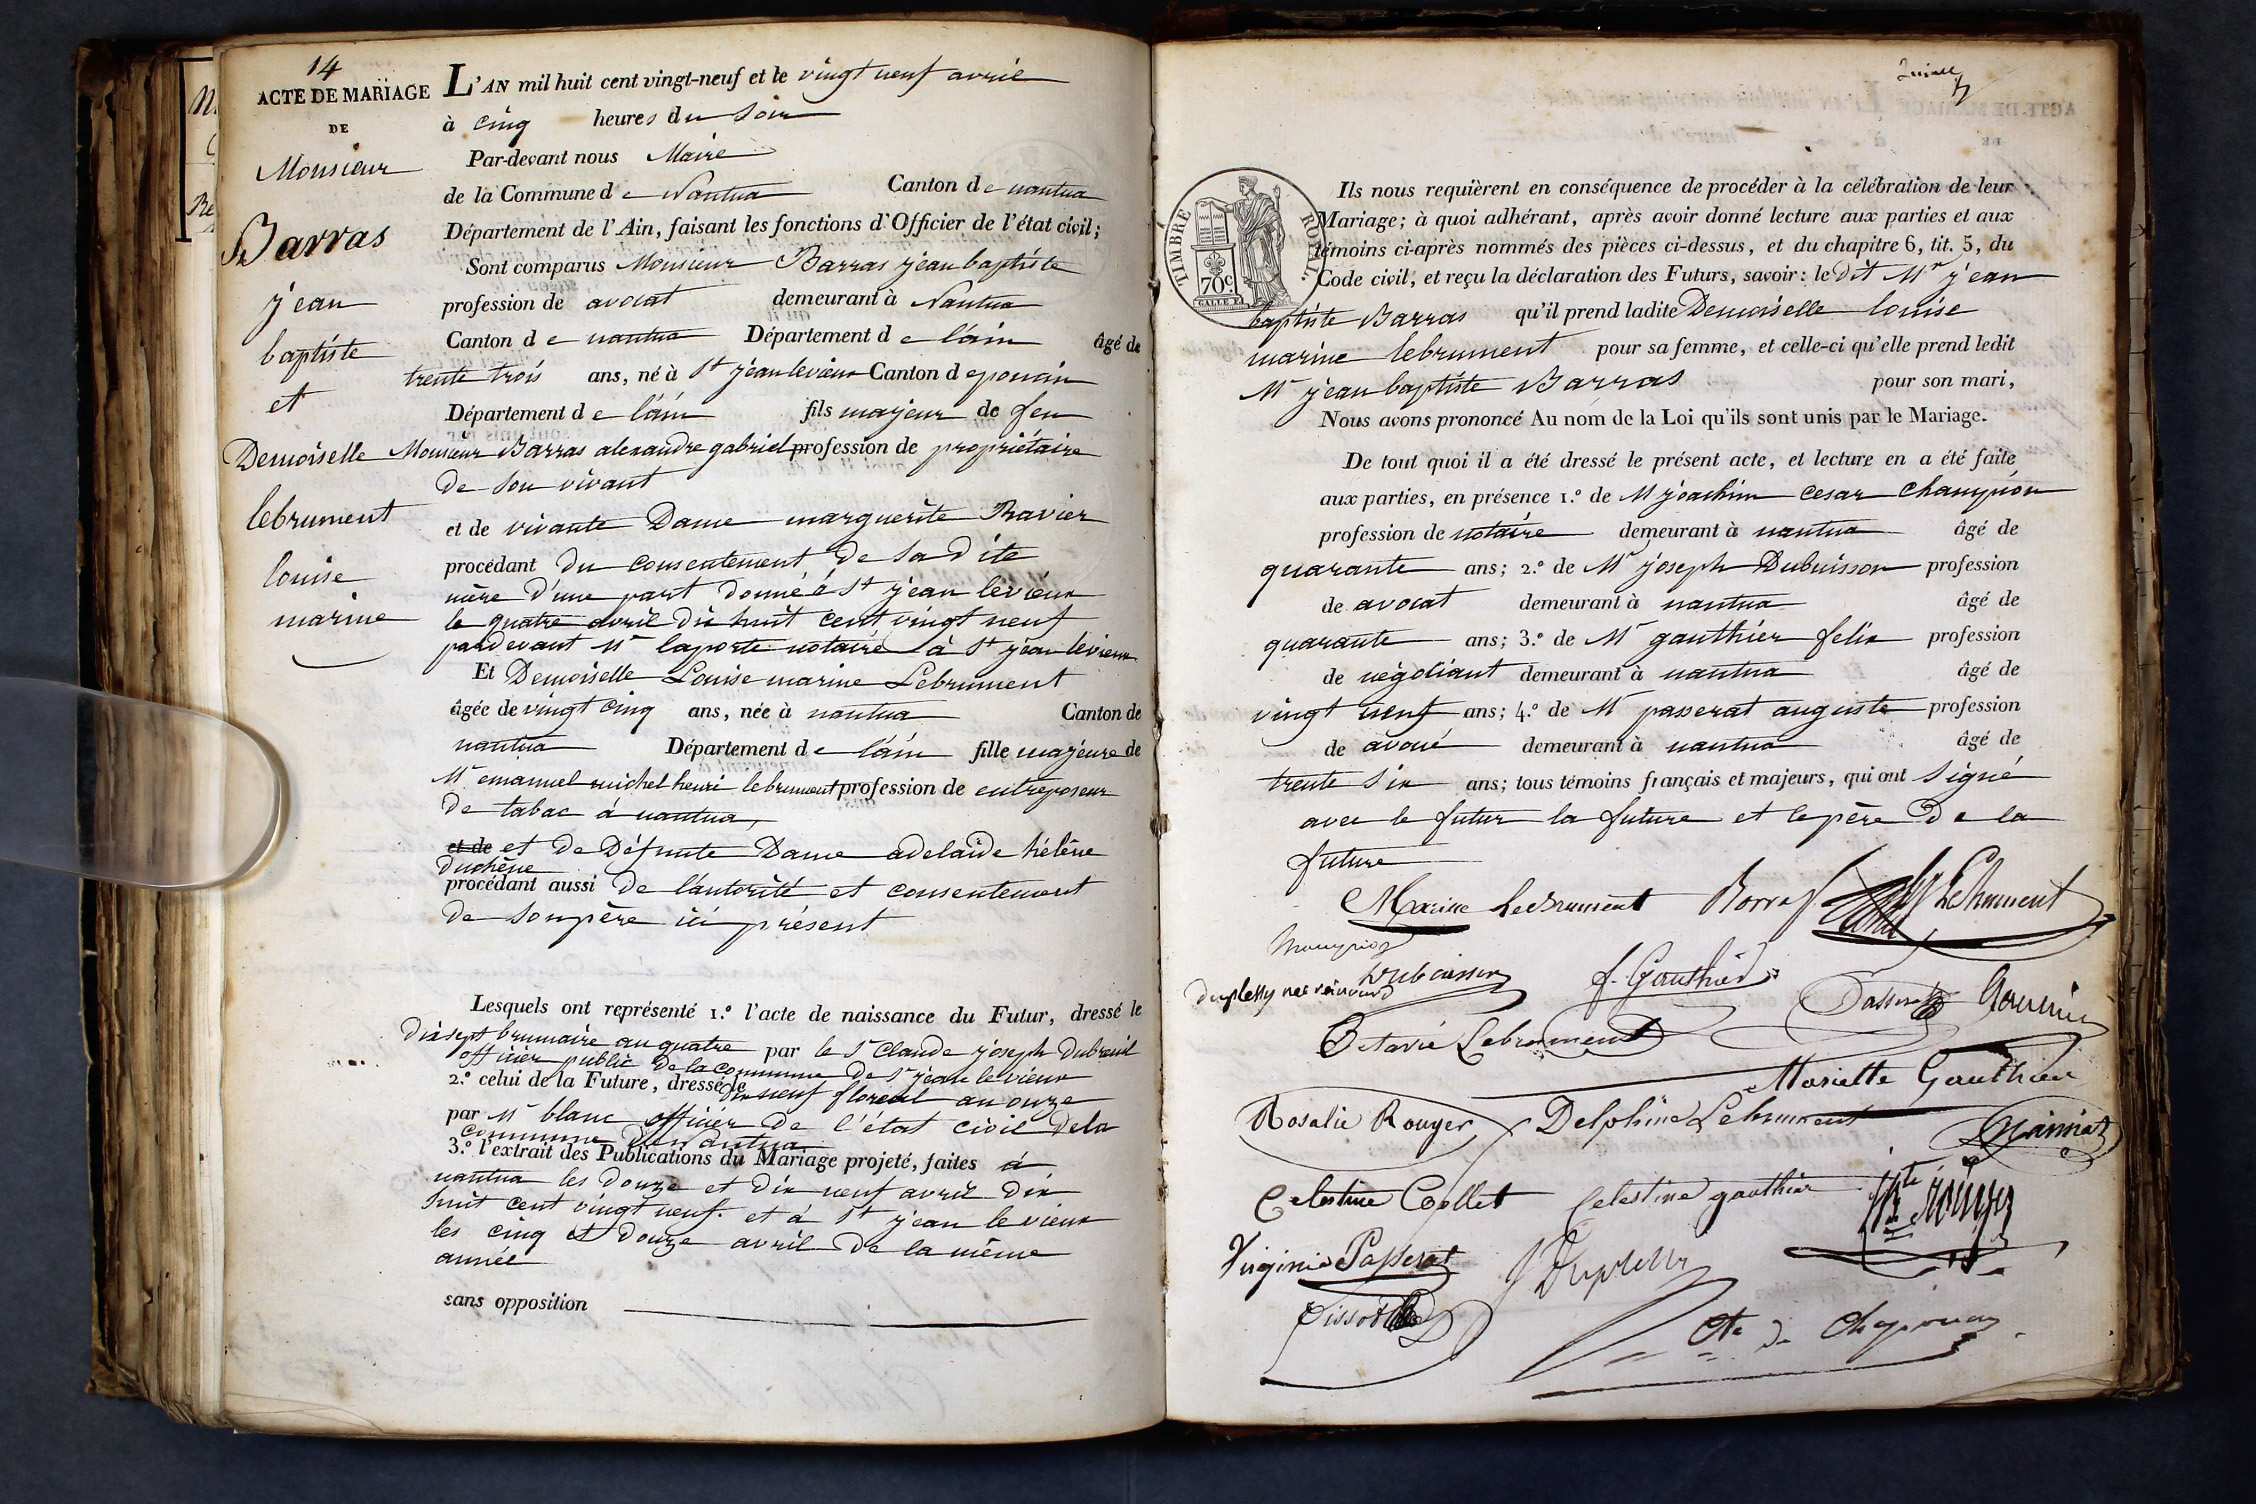 14
ACTE DE MARIAGE
DE
Monsieur
Barras
jean
baptiste
et
Demoiselle
lebrument
louise
marine
L'AN mil huit cent vingt-neuf et le vingt neuf avril
à cinq heures du soir
Par-devant nous Maire
de la Commune de Nantua Canton de nantua
Département de l'Ain, faisant les fonctions d'Officier de l'état civil;
Sont comparus Monsieur Barras jean baptiste
profession de avocat demeurant à Nantua
Canton de nantua Département de l'ain âgé de
trente trois ans, né à St jean levieux Canton de poncin
Département de l'ain fils majeur de feu
Monsieur Barras alexandre gabriel profession de propriétaire
de son vivant
et de vivante Dame marguerite Ravier
procédant du consentement de sa dite
mère d'une part donné à St jean levieux
le quatre avril dix huit cent vingt neuf
pardevant Mr laporte notaire à St jean levieux
Et Demoiselle Louise marine Lebrument
âgée de vingt cinq ans, née à nantua Canton de
nantua Département de l'ain fille majeure de
Mr emanuel michel henri lebrument profession de entreposeur
de tabac à nantua,
et de et de Défunte Dame adelaide hélène
duchêne
procédant aussi de l'autorité et consentement
de son père ici présent
Lesquels ont représenté 1.º l'acte de naissance du Futur, dressé le
dixsept brumaire an quatre par le Sr Claude joseph Dubreuil
officier public de la commune de St jean le vieux
2.º celui de la Future, dressé le dix neuf floreal an onze
par Mr blanc officier de l'état civil de la
commune de Nantua
3.º l'extrait des Publications du Mariage projeté, faites à
nantua les douze et dix neuf avril dix
huit cent vingt neuf. et à St jean le vieux
les cinq et douze avril de la même
année
sans opposition
TIMBRE ROYAL
70c
Ils nous requièrent en conséquence de procéder à la célébration de leur
Mariage; à quoi adhérant, après avoir donné lecture aux parties et aux
témoins ci-après nommés des pièces ci-dessus, et du chapitre 6, tit. 5, du
Code civil, et reçu la déclaration des Futurs, savoir: le dit Mr jean
baptiste Barras qu'il prend ladite Demoiselle louise
marine lebrument pour sa femme, et celle-ci qu'elle prend ledit
Mr jean baptiste Barras pour son mari,
Nous avons prononcé Au nom de la Loi qu'ils sont unis par le Mariage.
De tout quoi il a été dressé le présent acte, et lecture en a été faite
aux parties, en présence 1.º de M joachim cesar Champion
profession de notaire demeurant à nantua âgé de
quarante ans; 2.º de Mr joseph Dubuisson profession
de avocat demeurant à nantua âgé de
quarante ans; 3.º de Mr gauthier felix profession
de négociant demeurant à nantua âgé de
vingt neuf ans; 4.º de Mr passerat auguste profession
de avoué demeurant à nantua âgé de
trente six ans; tous témoins français et majeurs, qui ont signé
avec le futur la future et le père de la
future
Marine Lebrument Barras Lebrument
Dubuisson f. Gauthier Passerat
Octavie Lebrument
Mariette Gauthier
Rosalie Rouyer Delphine Lebrument
Celestine Collet Celestine gauthier
Virginie Passerat
Tissot